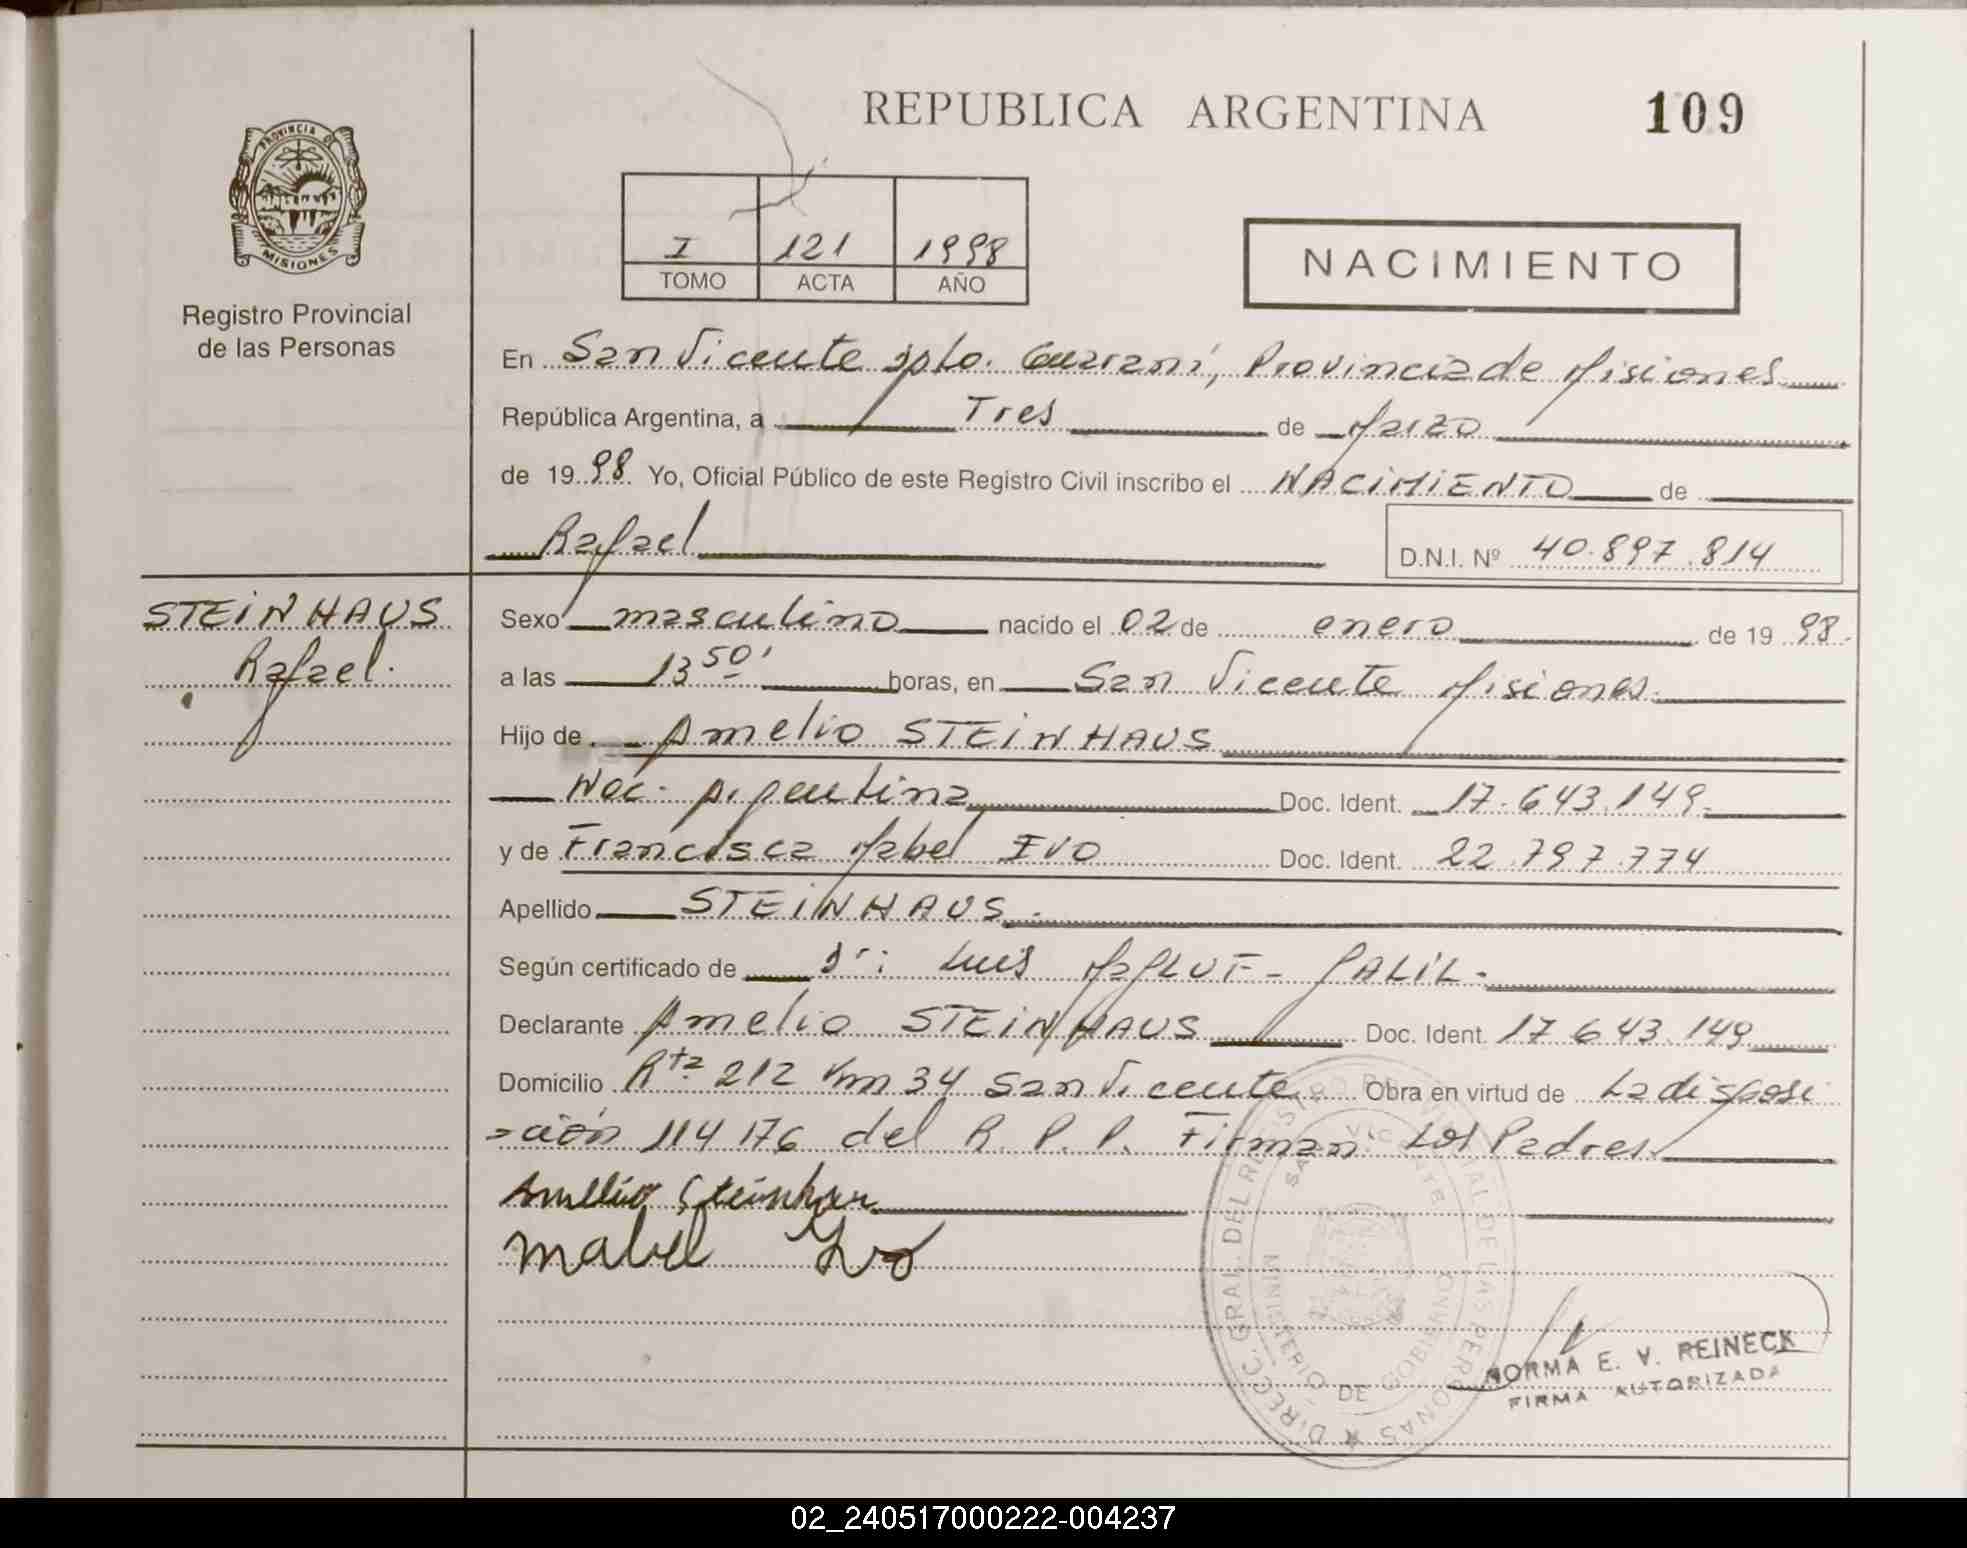 REPUBLICA ARGENTINA
109
PROVINCIA DE
MISIONES
Registro Provincial
de las Personas
I 121 1998
TOMO ACTA AÑO
NACIMIENTO
En San Vicente Dpto. Guaraní, Provincia de Misiones
República Argentina, a Tres de Marzo
de 1998 Yo, Oficial Público de este Registro Civil inscribo el NACIMIENTO de
Rafael
D.N.I. Nº 40.897.814
STEINHAUS
Rafael.
Sexo masculino nacido el 02 de enero de 1998.
a las 13 50' horas, en San Vicente Misiones.
Hijo de Amelio STEINHAUS
Nac. Argentina Doc. Ident. 17.643.149.
y de Francisca Mabel IVO Doc. Ident. 22.797.774
Apellido STEINHAUS.
Según certificado de Dr: Luis GALIL.
Declarante Amelio STEINHAUS Doc. Ident. 17.643.149
Domicilio Rta. 212 Km 34 San Vicente. Obra en virtud de La disposi
=ción 114176 del R. P. P. Firman: Los Padres
Amelio Steinhaus
Mabel Ivo
DIRECC. GRAL. DEL REGISTRO PROVINCIAL DE LAS PERSONAS
SAN VICENTE
MINISTERIO DE GOBIERNO
NORMA E. V. REINECK
FIRMA AUTORIZADA
02_240517000222-004237